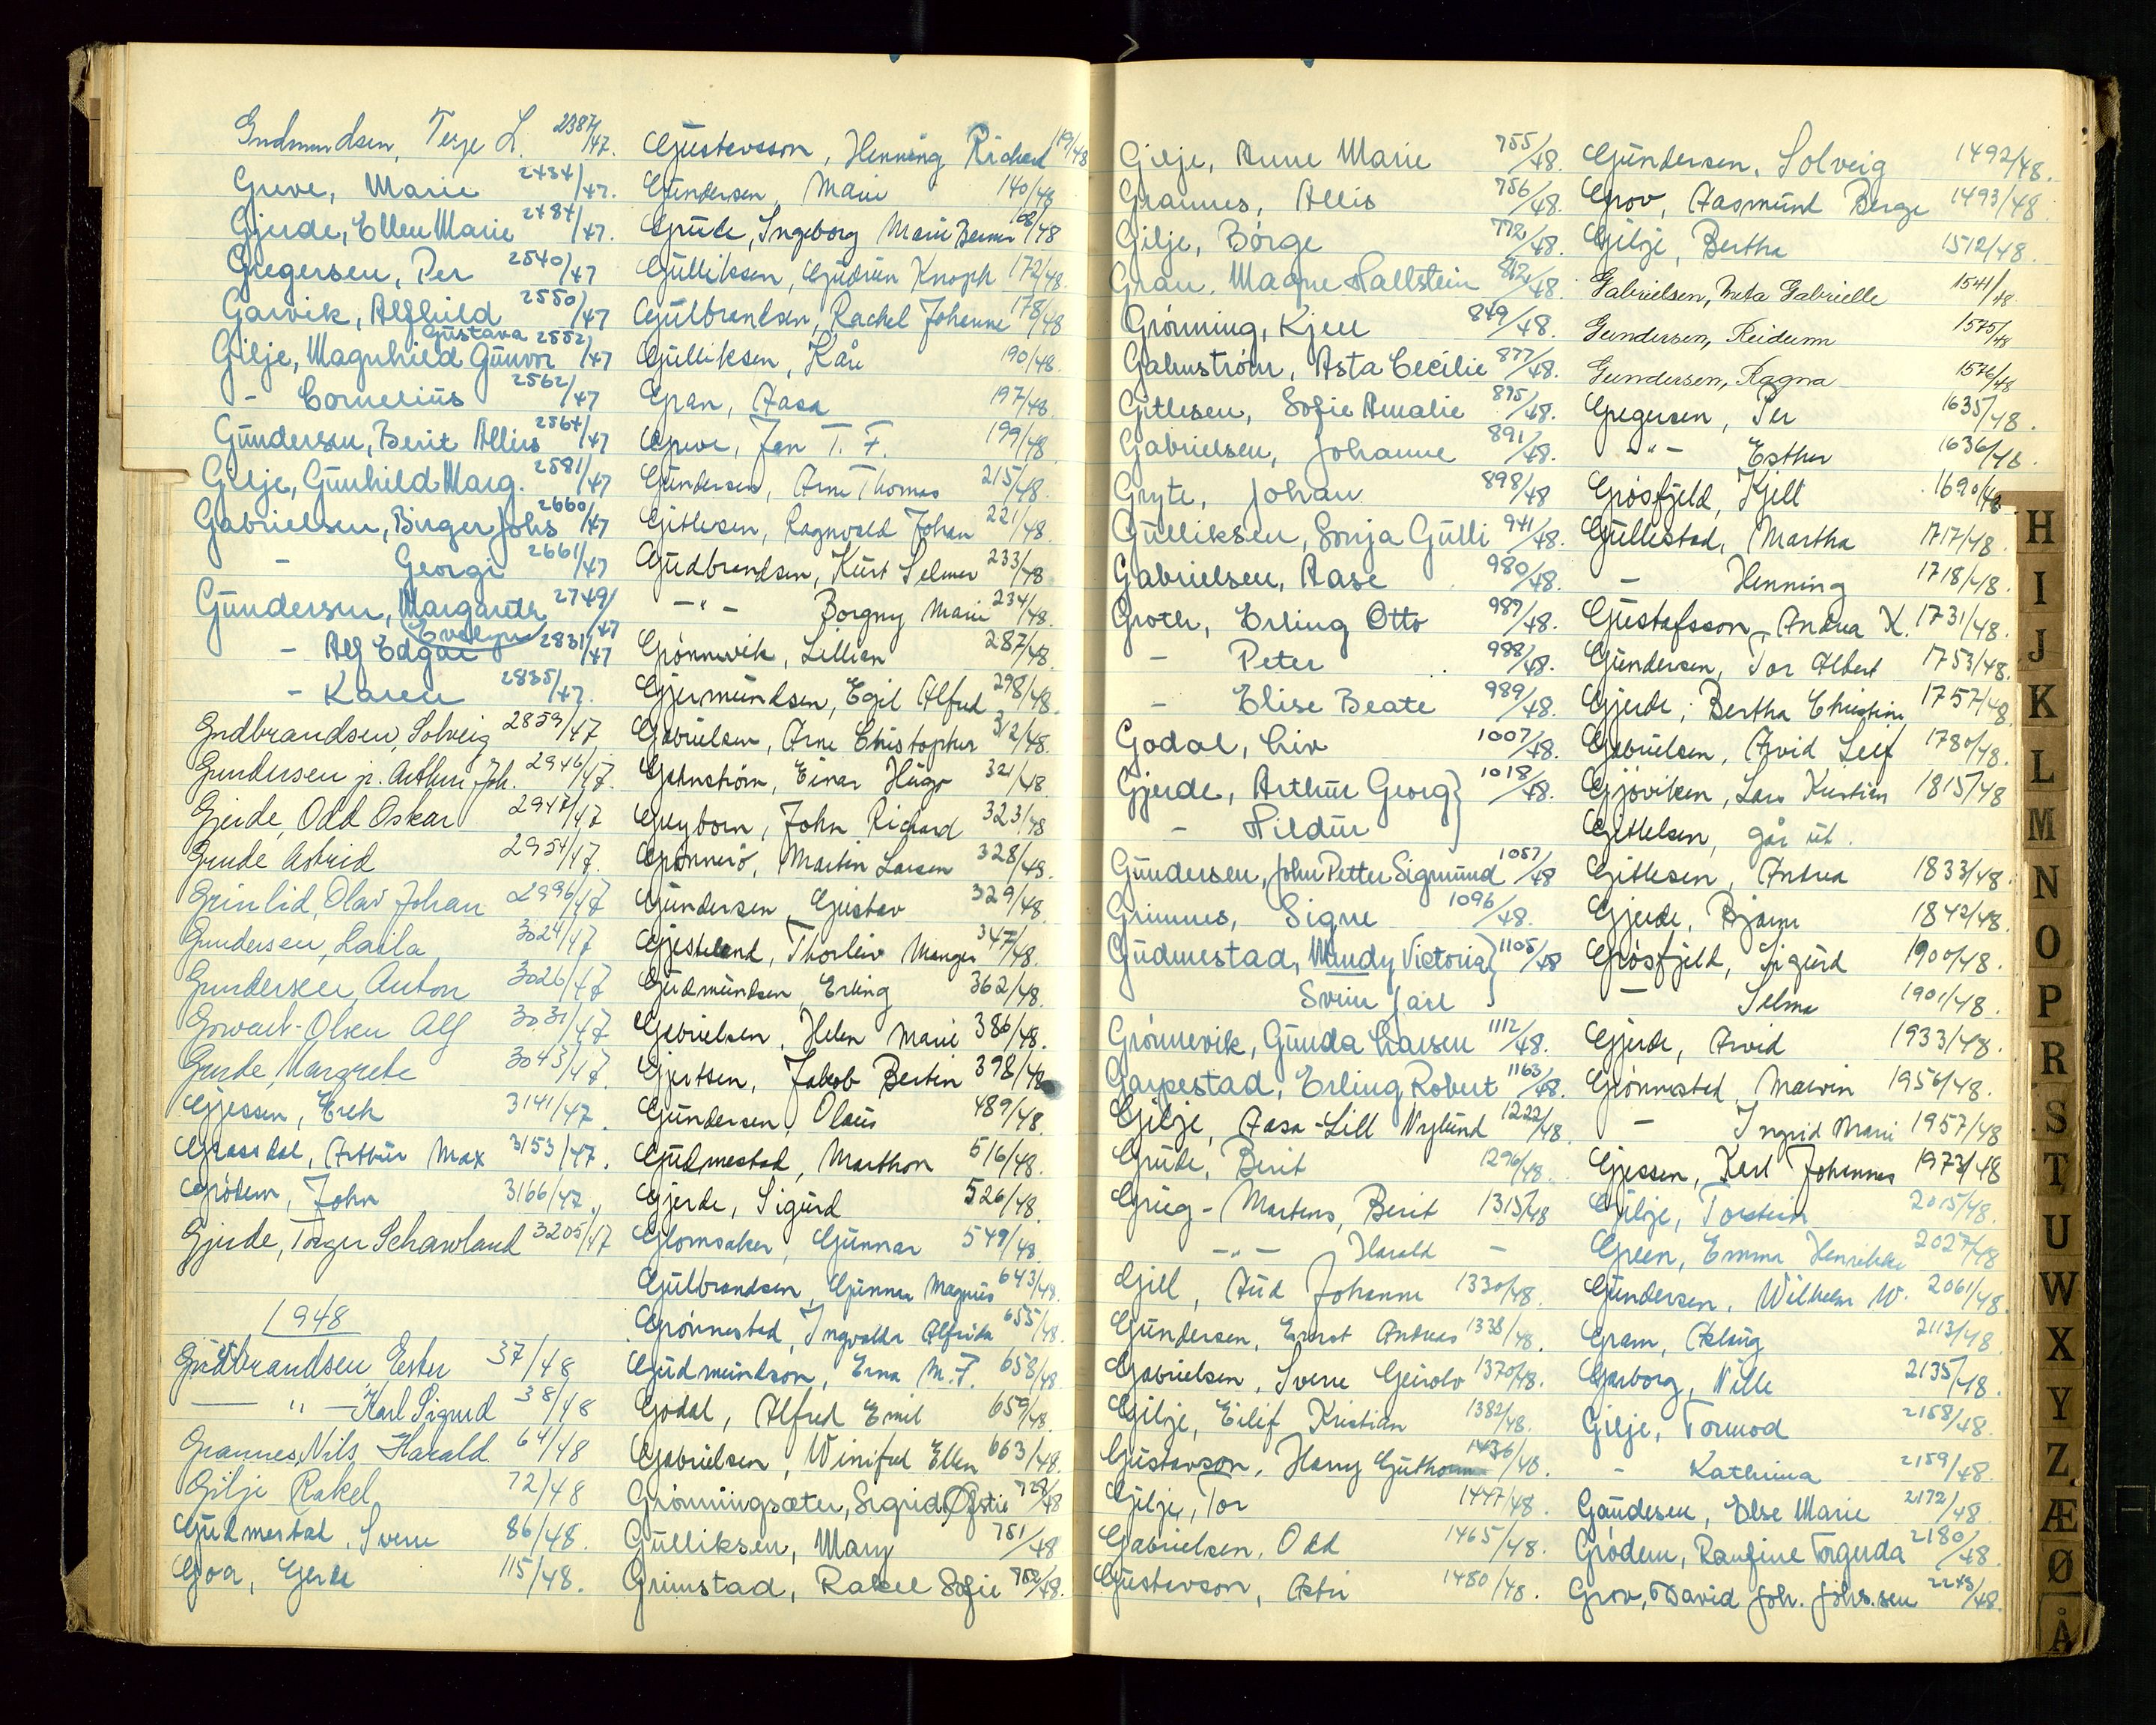 Gudmundsen, Terje L. 2387/47.
Greve, Marie 2434/47.
Gjerde, Ellen Marie 2484/47.
Gregersen, Per 2540/47
Garvik, Alfhild 2550/47
Gustava
Gilje, Magnhild Gunvor 2552/47
- Cornelius 2562/47
Gundersen, Berit Allis 2564/47
Gilje, Gunhild Marg. 2581/47
Gabrielsen, Birger Johs 2660/47
- Georgi 2661/47
Gundersen, Margareth 2749/47
Evelyn
- Alf Edgar 2831/47
- Karen 2835/47.
Gudbrandsen, Solveig 2859/47
Gundersen jr. Arthur Joh. 2946/47.
Gjerde, Odd Oskar 2947/47
Grude Astrid 2954/47.
Grinlid, Olav Johan 2996/47
Gundersen, Laila 3024/47
Gundersen, Anton 3026/47
Gowart-Olsen Alf 3031/47
Grude, Margrete 3043/47.
Gjessen, Erek 3141/47.
Grassdal, Arthur Max 3153/47.
Grödem, John 3166/47.
Gjerde, Torger Schawland 3205/47
1948
Gudbrandsen, Ester 37/48
— " — Karl Sigurd 38/48
Grannes, Nils Harald 64/48
Gilje Rakel 72/48
Gudmestad, Sverre 86/48.
Goa, Gerda 115/48.
Gustavsson, Henning Richard 119/48
Gundersen, Marie 140/48
Grude, Ingeborg Marie Berner 168/48
Gulliksen, Gudrun Knoph 172/48.
Gulbrandsen, Rachel Johanne 178/48
Gulliksen, Kåre 190/48.
Gran, Aasa 197/48.
Greve, Jan T. F. 199/48
Gundersen, Arne Thomas 215/48.
Gitlesen, Ragnvald Johan 221/48.
Gudbrandsen, Kurt Selmer 233/48
-"- Borgny Marie 234/48.
Grönnevik, Lillian 287/48.
Gjermundsen, Egil Alfred 298/48.
Gabrielsen, Arne Christopher 312/48.
Gahnström, Einar Hugo 321/48
Greyborn, John Richard 323/48
Grönnerö, Martin Larsen 328/48.
Gundersen, Gustav 329/48
Gjesteland, Thorleiv Manger 347/48.
Gudmundsen, Erling 362/48.
Gabrielsen, Helen Marie 386/48.
Gjertsen, Jakob Bertin 398/48
Gundersen, Olaus 489/48.
Gudmestad, Marthon 516/48.
Gjerde, Sigurd 526/48.
Glomsaker, Gunnar 549/48.
Gulbrandsen, Gunnar Magnus 643/48.
Grönnestad, Ingvalda Alfrida 655/48.
Gudmundson, Erna M. F. 658/48
Godal, Alfred Emil 659/48.
Gabrielsen, Winifred Ellen 663/48.
Grönningsæter, Sigrid Østie 728/48
Gulliksen, Mary 751/48
Grimstad, Rakel Sofie 752/48.
Gilje, Anne Marie 755/48.
Grannes, Allis 756/48.
Gilje, Börge 772/48.
Grau, Magne Hallstein 812/48.
Grönning, Kjell 849/48.
Gahnström, Asta Cecilie 877/48.
Gitlesen, Sofie Amalie 895/48.
Gabrielsen, Johanne 891/48.
Gryte, Johan 898/48
Gulliksen, Sonja Gulli 941/48.
Gabrielsen, Aase 980/48.
Groth, Erling Otto 987/48.
- Peter 988/48.
- Elise Beate 989/48.
Godal, Liv 1007/48.
Gjerde, Arthur Georg} 1018/48.
- Hildur
Gundersen, John Petter Sigmund 1057/48
Grimnes, Signe 1096/48.
Gudmestad, Wendy Victoria} 1105/48
Svein Jarl
Grönnevik, Gunda Larsen 1112/48.
Garpestad, Erling Robert 1163/48.
Gilje, Aasa-Lill Nylund 1222/48
Grude, Berit 1296/48.
Grieg-Martens, Berit 1315/48
-"- Harald -
Gjel, Aud Johanne 1330/48.
Gundersen, Ernst Andreas 1338/48.
Gabrielsen, Sverre Geirolv 1370/48.
Gilje, Eilif Kristian 1382/48.
Gustavson, Harry Guthorm 1436/48.
Gilje, Tor 1447/48.
Gabrielsen, Odd 1465/48.
Gustavson, Astri 1480/48.
Gundersen, Solveig 1492/48.
Grov, Aasmund Berge 1493/48.
Gilje, Bertha 1512/48.
Gabrielsen, Meta Gabrielle 1541/48
Gundersen, Reidunn 1575/48
Gundersen, Ragna 1576/48
Gregersen, Per 1635/48.
-"- Esther 1636/48.
Grösfjeld, Kjell 1690/48
Gullestad, Martha 1717/48.
- Henning 1718/48.
Gustafsson, Andrea K. 1731/48.
Gundersen, Tor Albert 1753/48.
Gjerde, Bertha Christine 1757/48
Gabrielsen, Arvid Leif 1780/48.
Gjöviken, Lars Kristian 1815/48
Gittelsen, går ut.
Gitlesen, Andrea 1833/48.
Gjerde, Bjarne 1842/48.
Grösfjeld, Sigurd 1900/48.
- Selma 1901/48.
Gjerde, Arvid 1933/48.
Grönnestad, Malvin 1956/48.
- Ingrid Marie 1957/48
Gjessen, Karl Johannes 1973/48
Gilje, Torstein 2015/48.
Green, Emma Henrikke 2027/48
Gundersen, Wilhelm W. 2061/48.
Gram, Aslaug 2113/48.
Garborg, Nille 2135/48.
Gilje, Tormod 2158/48.
- Kathrina 2159/48.
Gaudesen, Else Marie 2172/48.
Grödem, Raufine Torgerda 2180/48.
Grov, David Joh. Johs.sen 2243/48.
H
I
J
K
L
M
N
O
P
R
S
T
U
W
X
Y
Z.
Æ
Ø
Å